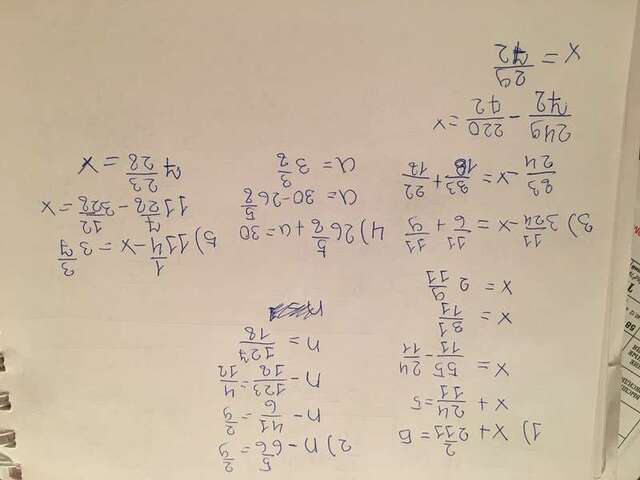 1) x + 2 2/11 = 5
x + 24/11 = 5
x = 55/11 - 24/11
x = 31/11
x = 2 9/11
2) n - 6 5/6 = 2/9
n - 41/6 = 2/9
n - 123/18 = 4/18
n = 127/18
3) 3 11/24 - x = 11/6 + 11/9
83/24 - x = 33/18 + 22/18
249/72 - 220/72 = x
x = 29/72
4) 26 5/8 + a = 30
a = 30 - 26 5/8
a = 3 3/8
5) 11 1/4 - x = 3 3/7
11 7/28 - 3 12/28 = x
7 23/28 = x
58